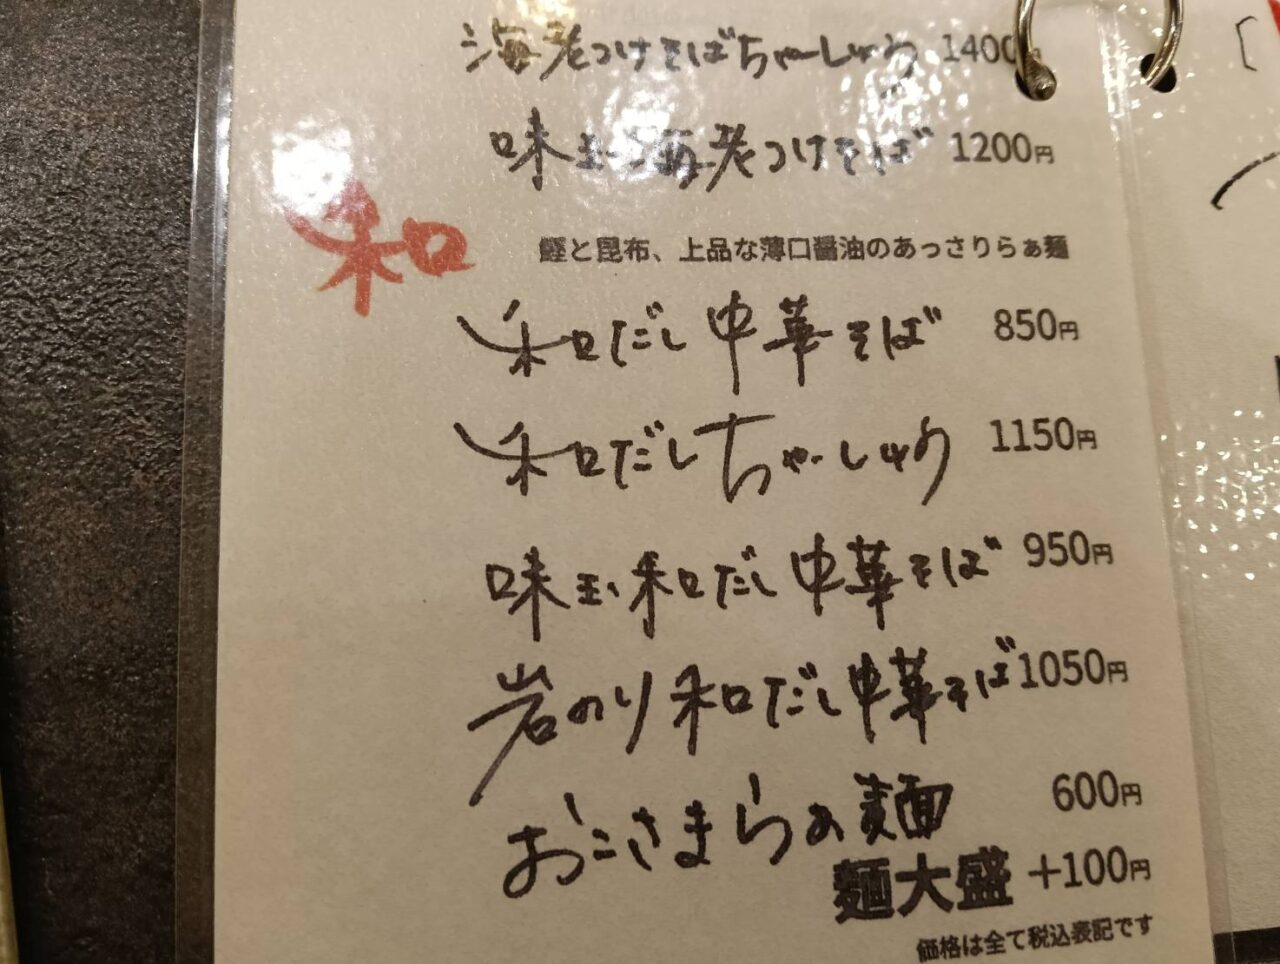 海老つけそばちゃーしゅう 1400円
味玉海老つけそば 1200円
和
鰹と昆布、上品な薄口醤油のあっさりらぁ麺
和だし中華そば 850円
和だしちゃーしゅう 1150円
味玉和だし中華そば 950円
岩のり和だし中華そば 1050円
おこさまらぁ麺 600円
麺大盛 +100円
価格は全て税込表記です